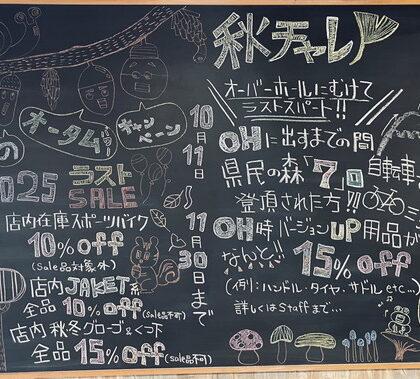 秋チャレ
オーバーホールにむけて
ラストスパート!!
OHに出すまでの間
県民の森「7」の自転車
登頂された方!!
OH時バージョンUP用品が
なんと!! 15%off
(例リ:ハンドル・タイヤ、サドル etc...)
詳しくはstaffまで...
の
オータム
キャンペーン
10月11日
11月30日まで
2025 ラスト
SALE
店内在庫スポーツバイク
10%off
(Sale品対象外)
店内JAKET系
全品10%off(sale品不可)
店内 秋冬グローブ&くつ下
全品 15%off(sale品可)